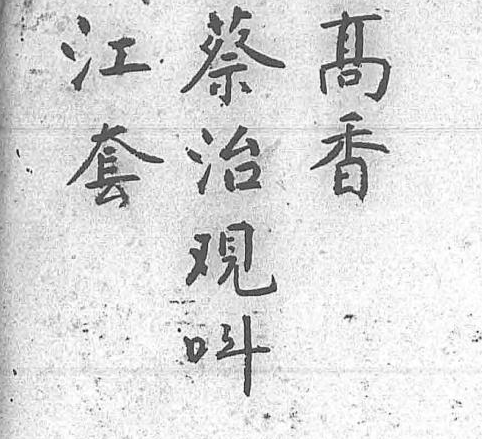 髙香
蔡治观呌
江套